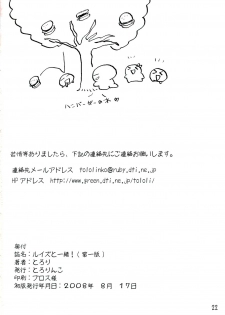 ハンバーガーの木の
苦情等ありましたら、下記の連絡先にご連絡お願いします。
連絡先メールアドレス tololinko@ruby.dti.ne.jp
HPアドレス http://www.green.dti.ne.jp/tololi/
奥付
誌名:ルイズと一緒!(第一版)
著者:とろり
発行:とろりんこ
印刷:プロス様
初版発行年月日:2008年 8月 17日
22